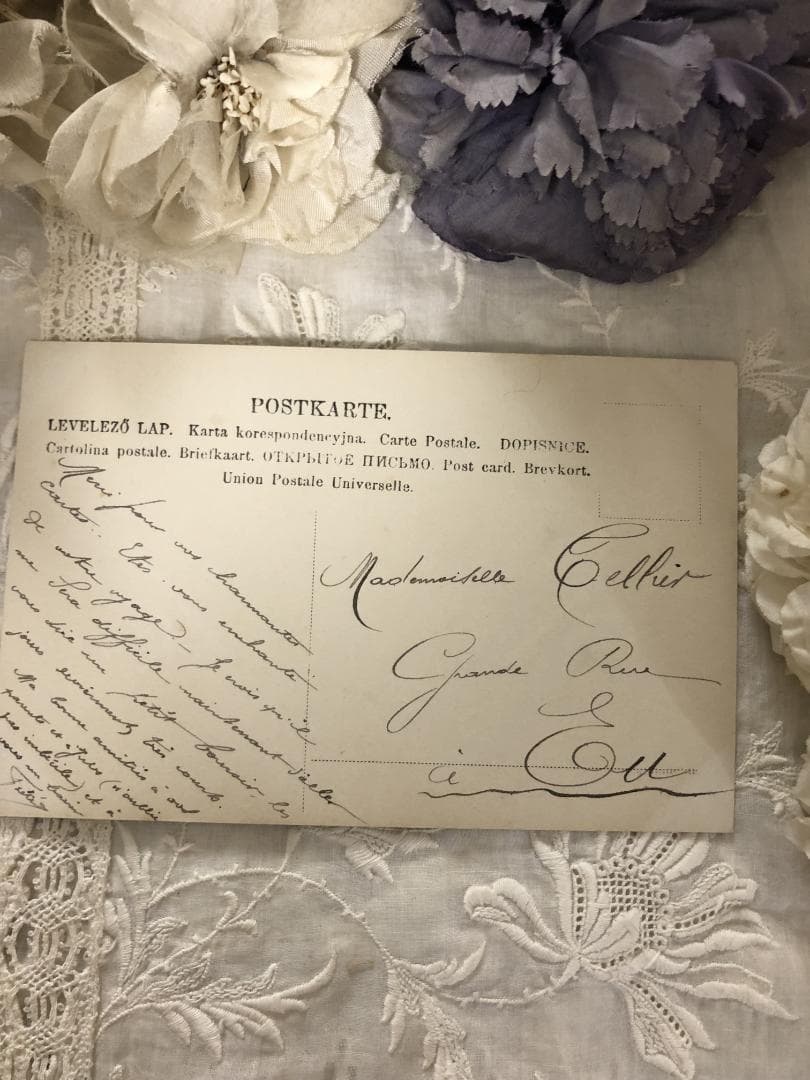 POSTKARTE.
LEVELEZŐ LAP. Karta korespondencyjna. Carte Postale. DOPISNICE.
Cartolina postale. Briefkaart. ОТКРЫТОЕ ПИСЬМО. Post card. Brevkort.
Union Postale Universelle.
Merci pour vos charmantes
cartes. Etes vous enchantée
de votre voyage _ Je crois qu'il
me sera difficile maintenant d'aller
vous dire un petit bonsoir, les
jours
Ma bonne amitiés à vos
parents et
Mademoiselle Tellier
Grande Rue
à Eu